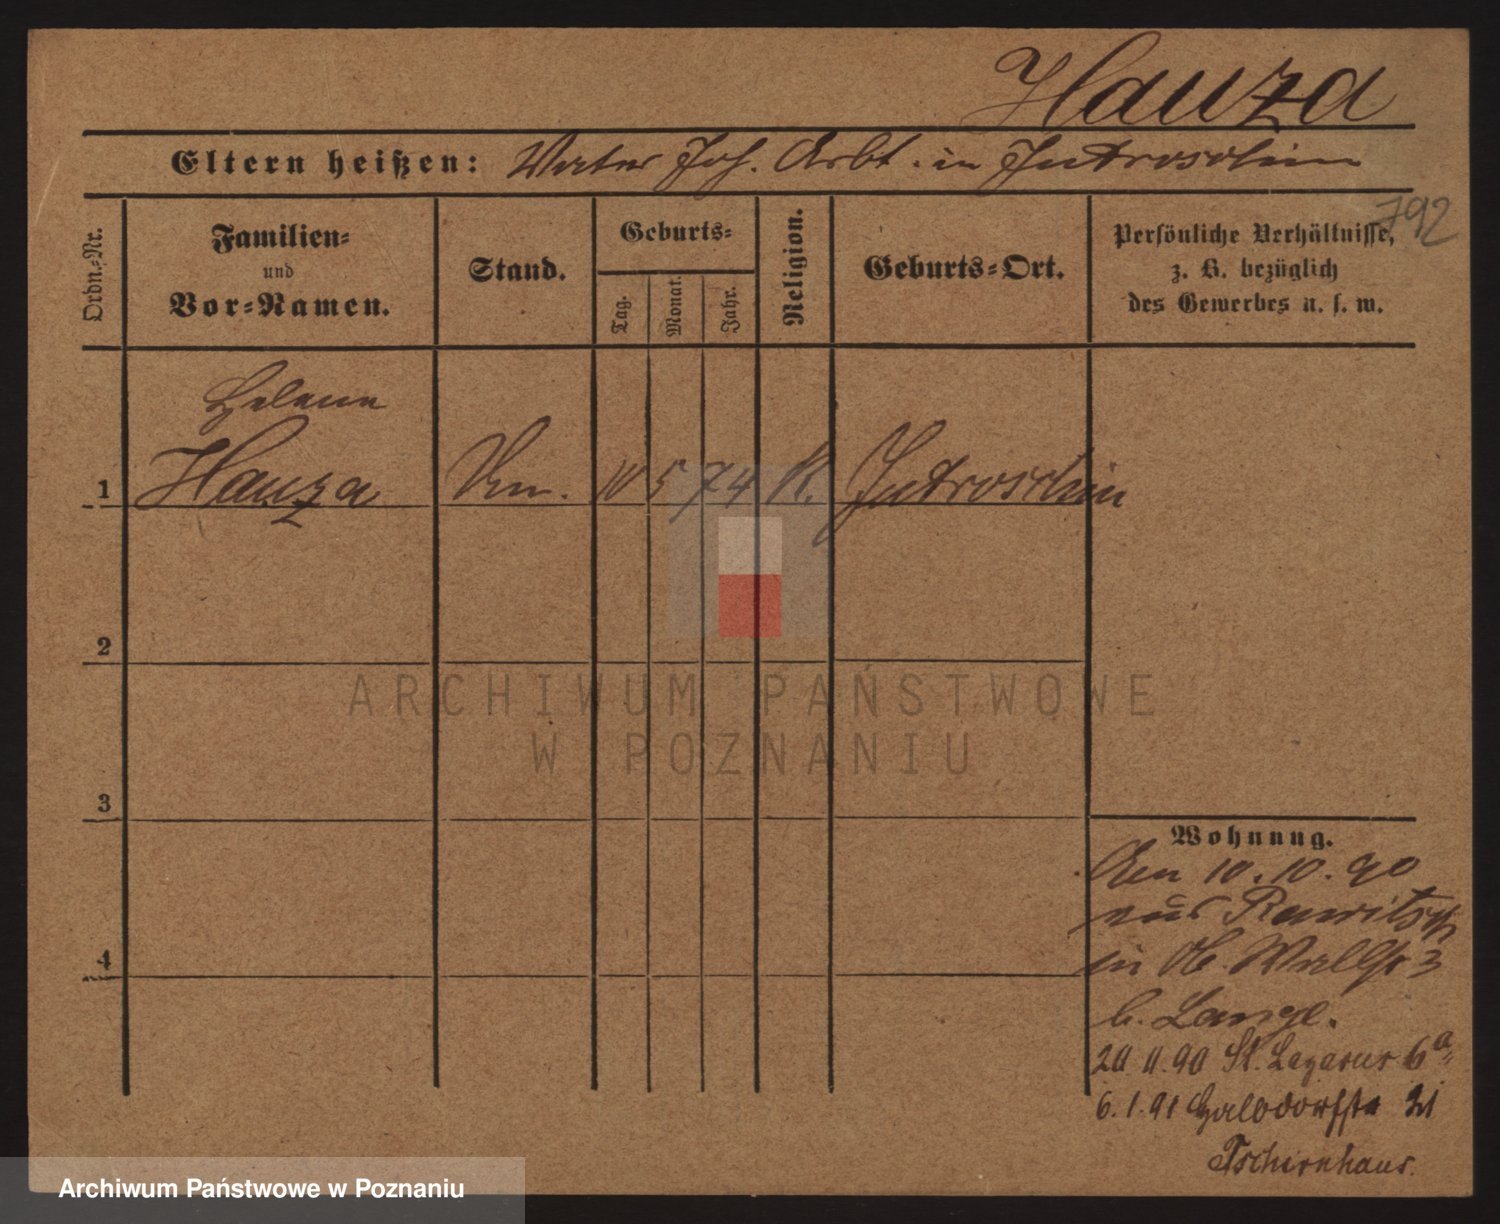 Hauza
Eltern heißen: Vater Joh. Arbt. in Jutroschin
792
Ordn.-Nr.
Familien-
und
Vor-Namen.
Stand.
Geburts-
Tag.
Monat.
Jahr.
Religion.
Geburts-Ort.
Persönliche Verhältnisse,
z. B. bezüglich
des Gewerbes u. s. w.
Helene
1 Hauza 10 5 74 K. Jutroschin
2
3
4
ARCHIWUM PAŃSTWOWE
W POZNANIU
Wohnung.
Am 10.10.90
aus Rawitsch
in Ob. Wallstr 3
b. Lange.
20.11.90 St. Lazarus 6a
6.1.91 Halbdorfstr 21
Tschirnhaus.
Archiwum Państwowe w Poznaniu